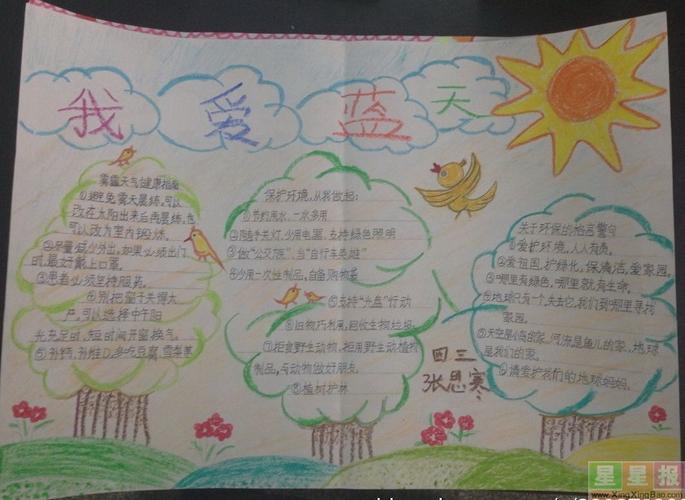 我爱蓝天
雾霾天气健康指南
①避免雾天晨练,可以
改在太阳出来后再晨练,也
可以改为室内锻炼。
②尽量减少外出,如果必须出门
时,最好戴上口罩。
③患者必须坚持服药。
④别把窗子关得太
严,可以选择中午阳
光充足时,短时间开窗换气。
保护环境,从我做起:
①节约用水,一水多用
②随手关灯,少用电器,支持绿色照明
③做“公交族”当“自行车英雄”
④少用一次性制品,自备购物袋
⑤支持“光盘”行动
⑥旧物巧利用,回收生物垃圾
⑦拒食野生动物,拒用野生动植物
制品,与动物做好朋友
⑧植树护林
关于环保的格言警句
①爱护环境,人人有责。
②爱祖国,护绿化,保清洁,爱家园。
③哪里有绿色,哪里就有生命。
④地球只有一个,失去它,我们到哪里寻找
家园。
⑤天空是小鸟的家,河流是鱼儿的家,地球
是我们的家。
⑥请爱护我们的地球妈妈。
四三
张思寒
星星报
www.XingXingBao.com